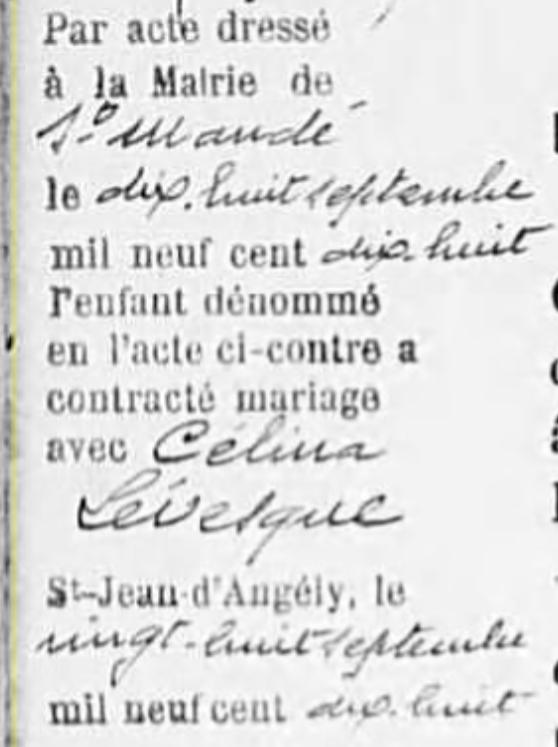 Par acte dressé
à la Mairie de
St Mandé
le dix. huit septembre
mil neuf cent dix. huit
l'enfant dénommé
en l'acte ci-contre a
contracté mariage
avec Célina
Lévesque
St-Jean-d'Angély, le
vingt-huit septembre
mil neuf cent dix. huit